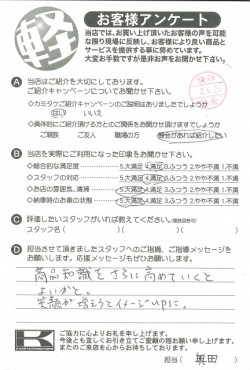 軽
お客様アンケート
当店では、お買い上げ頂いたお客様の声を可能
な限り現場に反映し、お客様により良い商品と
サービスを提供する事に努めています。
大変お手数ですが是非お声をお聞かせ下さい。
A 当店はご紹介を大切にしております。
ご紹介キャンペーンについてお聞かせ下さい。
◇カミタケご紹介キャンペーンのご説明はありましたでしょうか
はい いいえ
◇具体的にご紹介頂ける方とのご関係をお聞かせ頂けますでしょうか
ご親族 ご友人 職場の方 機会があれば紹介したい
B 当店を実際にご利用になった印象をお聞かせ下さい。
◇総合的な満足度 5.大満足 4.満足 3.ふつう 2.やや不満 1.不満
◇スタッフの対応 5.大満足 4.満足 3.ふつう 2.やや不満 1.不満
◇お店の雰囲気、清掃 5.大満足 4.満足 3.ふつう 2.やや不満 1.不満
◇納車時のお車の状態 5.大満足 4.満足 3.ふつう 2.やや不満 1.不満
C 評価したいスタッフがいれば教えてください。
スタッフ名( )( )( )
D 担当させて頂きましたスタッフへのご指摘、ご指導メッセージを
お願いします。応援メッセージもぜひお願いします。
商品知識をさらに高めていくと
よいかと。
笑顔が増えるとイメージUPに。
K
ご協力に心よりお礼を申し上げます。
今後とも宜しくお引き立てご愛顧の程お願い申し上げます。
またのご来店を心からお待ちしております。
担当( 奥田 )